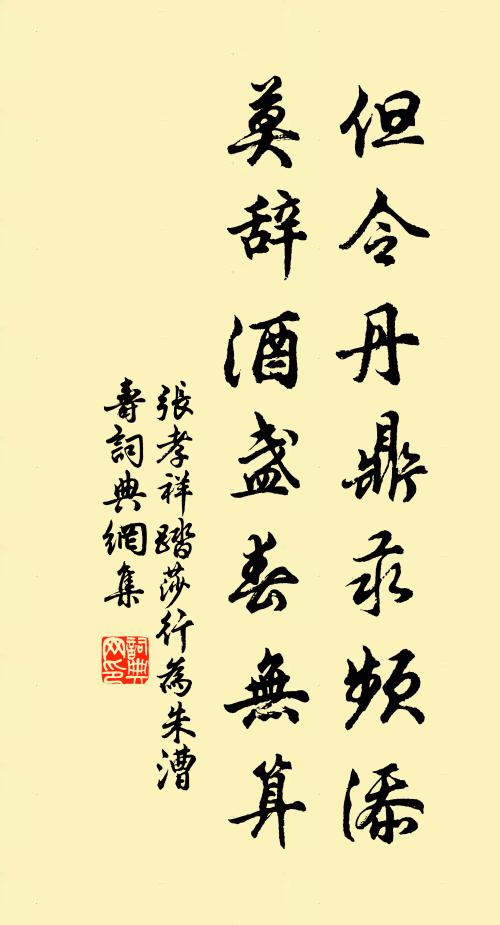 但令丹鼎汞頻添
莫辞酒盞春無算
張孝祥踏莎行為朱漕
壽詞典網集
詞典
网印